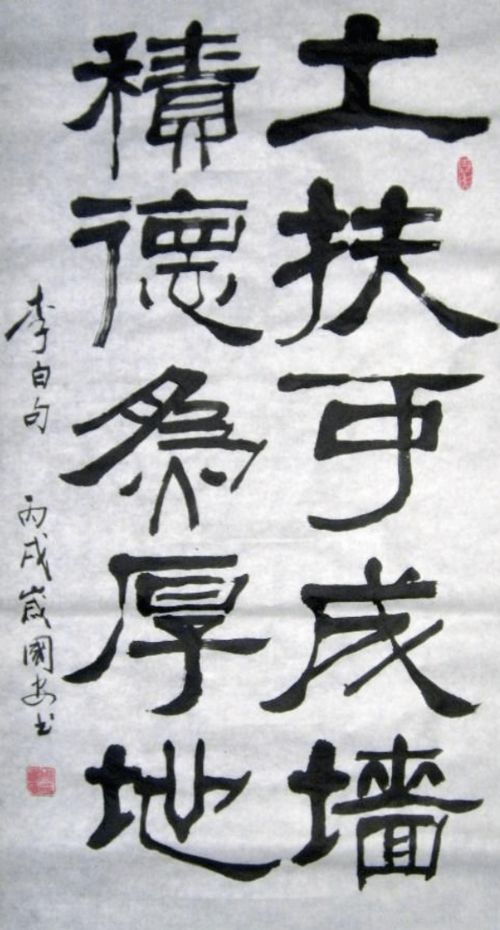 土扶可成墻
積德為厚地
李白句 丙戌歲國安书